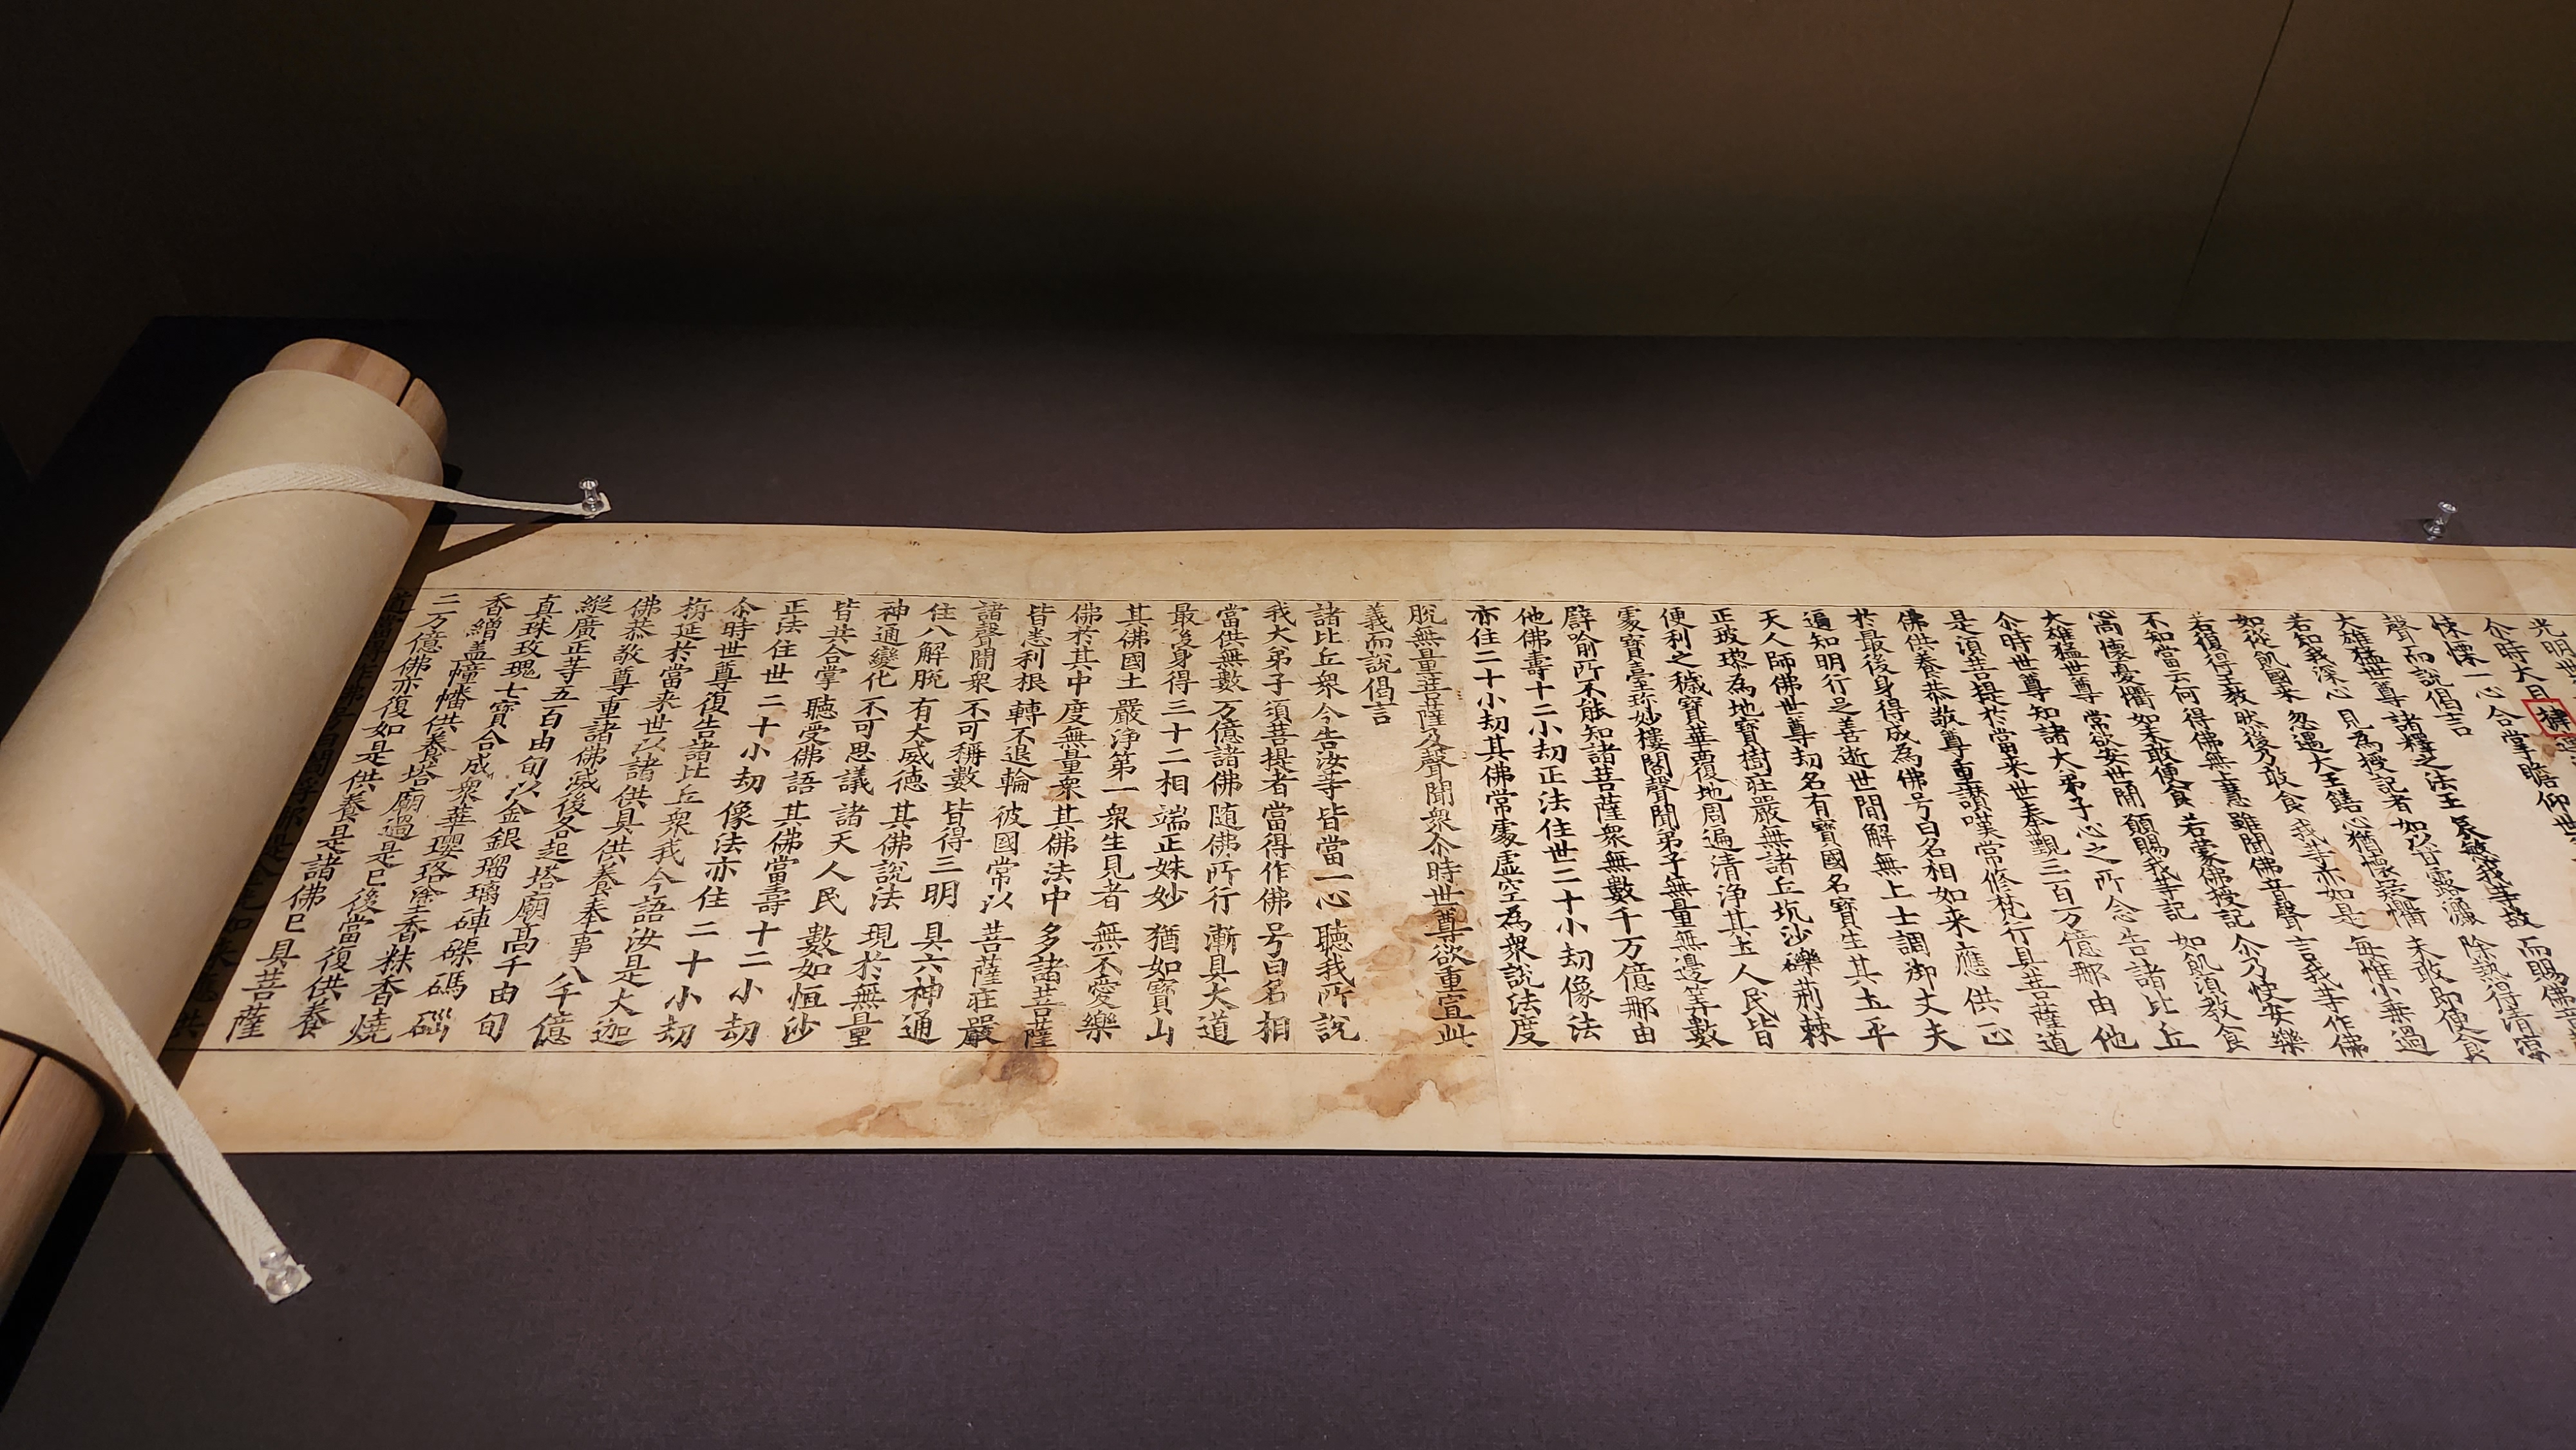 光明世
尒時大目犍連
悚慄一心合掌瞻仰世
聲而說偈言
大雄猛世尊 諸釋之法王 哀愍我等故 而賜佛音
若知我深心 見為授記者 如以甘露灑 除熱得清涼
如從飢國来 忽遇大王饍 心猶懷疑懼 未敢即便食
若復得王教 然後乃敢食 我等亦如是 每惟小乗過
不知當云何 得佛無上慧 雖聞佛音聲 言我等作佛
尚懷憂懼 如未敢便食 若蒙佛授記 尒乃快安樂
大雄猛世尊 常欲安世間 願賜我等記 如飢湏教食
尒時世尊知諸大弟子心之所念告諸比丘
是湏菩提於當来世奉覲三百万億那由他
佛供養恭敬尊重讃嘆常修梵行具菩薩道
於最後身得成為佛号曰名相如来應供正
遍知明行足善逝世間解無上士調御丈夫
天人師佛世尊劫名有寶國名寶生其土平
正玻瓈為地寶樹莊嚴無諸丘坑沙礫荊棘
便利之穢寶華覆地周遍清浄其土人民皆
處寶臺珎妙樓閣聲聞弟子無量無邊筭數
譬喻所不能知諸菩薩衆無數千万億那由
他佛壽十二小劫正法住世二十小劫像法
亦住二十小劫其佛常處虛空為衆說法度
脫無量菩薩及聲聞衆尒時世尊欲重宣此
義而說偈言
諸比丘衆 今告汝等 皆當一心 聽我所說
我大弟子 湏菩提者 當得作佛 号曰名相
當供無數 万億諸佛 随佛所行 漸具大道
最後身得 三十二相 端正姝妙 猶如寶山
其佛國土 嚴浄第一 衆生見者 無不愛樂
佛於其中 度無量衆 其佛法中 多諸菩薩
皆悉利根 轉不退輪 彼國常以 菩薩莊嚴
諸聲聞衆 不可稱數 皆得三明 具六神通
住八解脫 有大威徳 其佛說法 現於無量
神通變化 不可思議 諸天人民 數如恒沙
皆共合掌 聽受佛語 其佛當壽 十二小劫
正法住世 二十小劫 像法亦住 二十小劫
尒時世尊復告諸比丘衆我今語汝是大迦
栴延於當来世以諸供具供養奉事八千億
佛恭敬尊重諸佛滅後各起塔廟高千由旬
縱廣正等五百由旬以金銀瑠璃硨磲碼碯
真珠玫瑰七寶合成衆華瓔珞塗香粖香燒
香繒盖幢幡供養塔廟過是已後當復供養
二万億佛亦復如是供養是諸佛已具菩薩
道當得作佛号曰閻浮那提金光如来應供